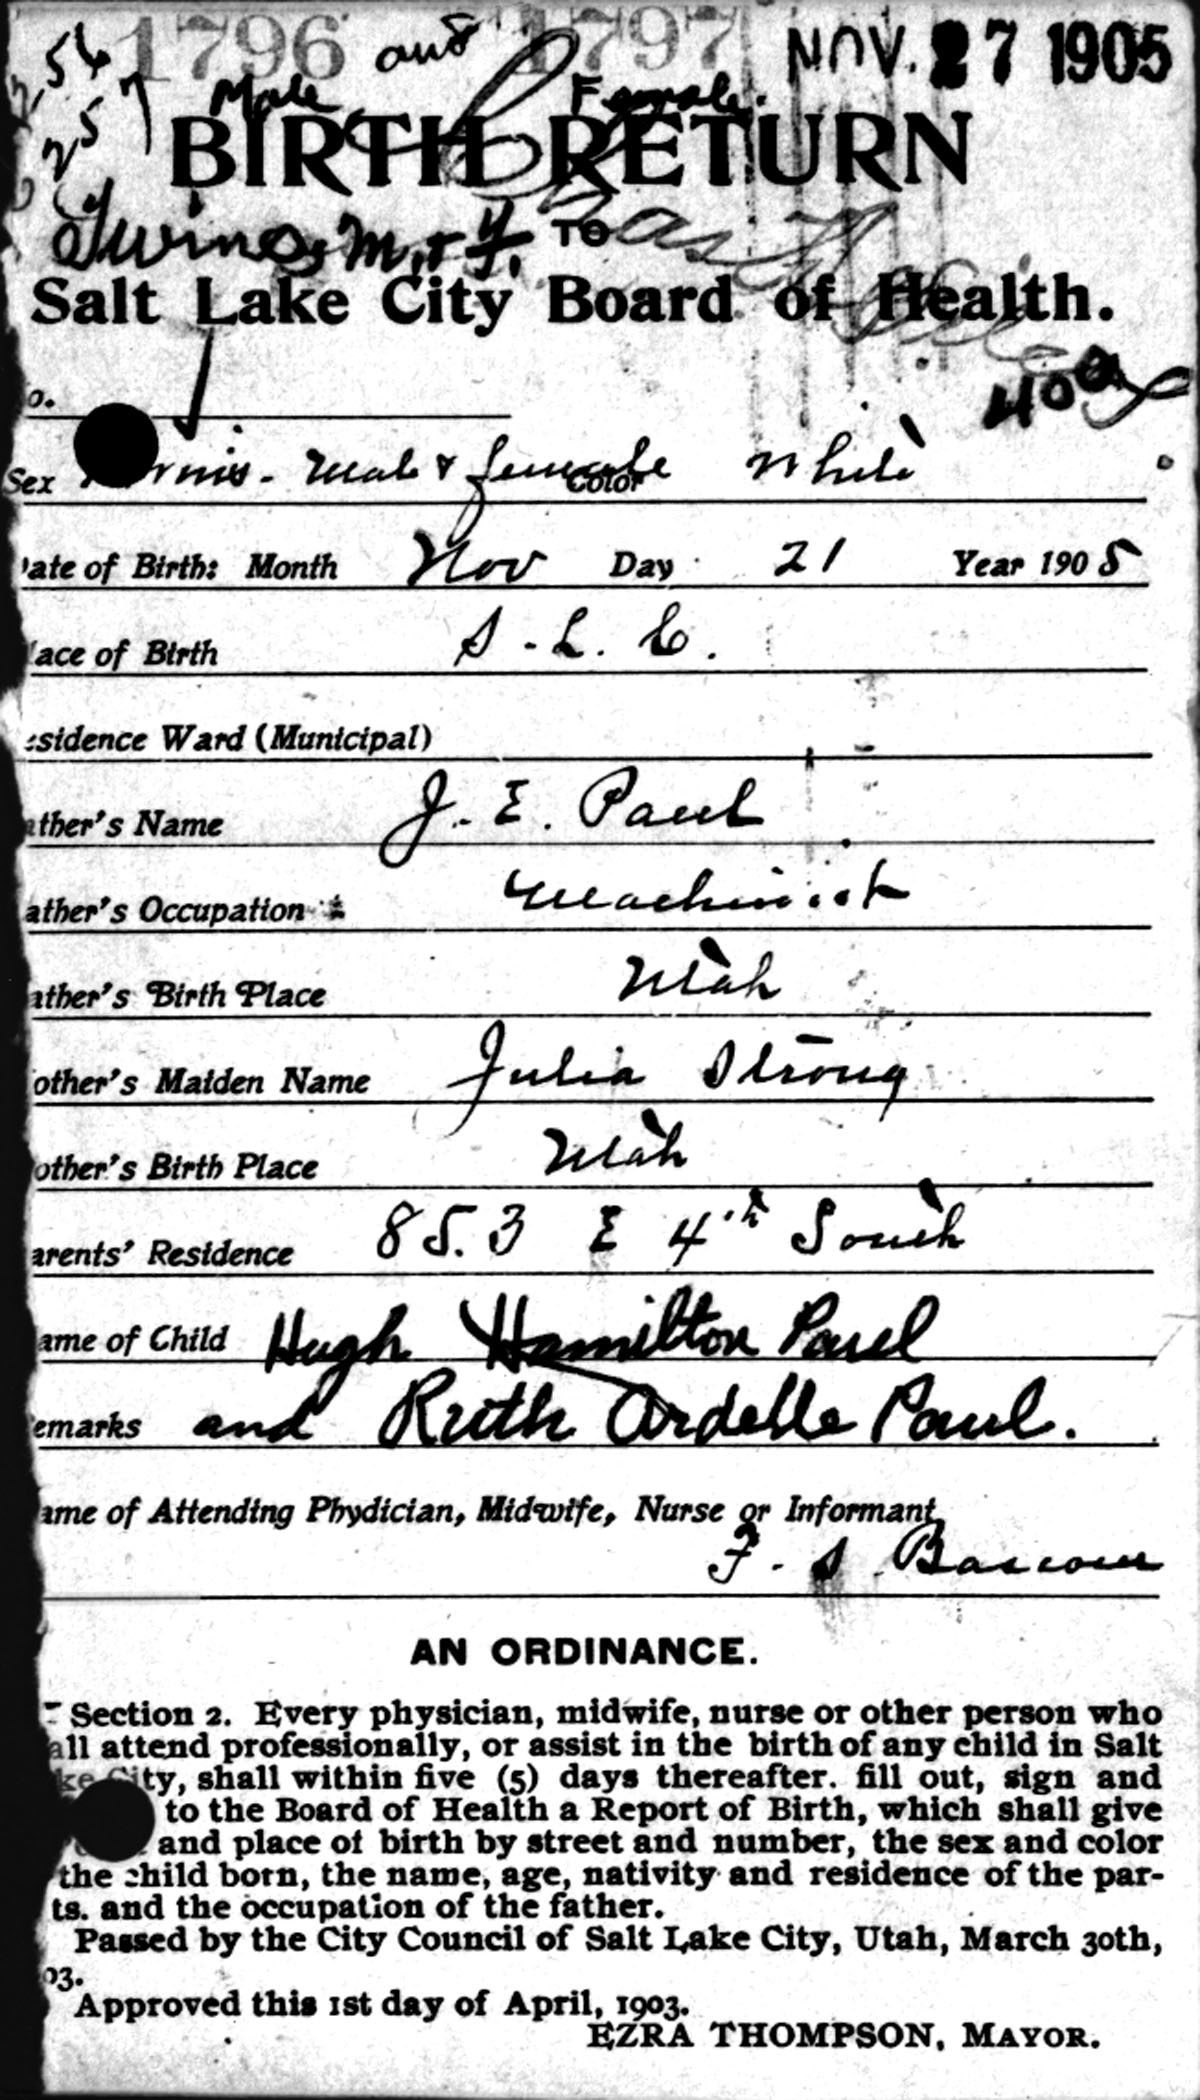 1796 and 1797 NOV. 27 1905
Male Female.
BIRTH RETURN
Twins, M. & F. TO
Salt Lake City Board of Health.
o.
400
Sex Male & female Color White
ate of Birth: Month Nov Day 21 Year 1905
lace of Birth S. L. C.
esidence Ward (Municipal)
ather's Name J. E. Paul
ather's Occupation Machinist
ather's Birth Place Utah
other's Maiden Name Julia Strong
other's Birth Place Utah
arents' Residence 853 E 4th South
ame of Child Hugh Hamilton Paul
emarks and Ruth Ardelle Paul.
ame of Attending Phydician, Midwife, Nurse or Informant
F. S. Bascom
AN ORDINANCE.
Section 2. Every physician, midwife, nurse or other person who
all attend professionally, or assist in the birth of any child in Salt
ke City, shall within five (5) days thereafter. fill out, sign and
to the Board of Health a Report of Birth, which shall give
and place of birth by street and number, the sex and color
the child born, the name, age, nativity and residence of the par-
ts. and the occupation of the father.
Passed by the City Council of Salt Lake City, Utah, March 30th,
03.
Approved this 1st day of April, 1903.
EZRA THOMPSON, MAYOR.